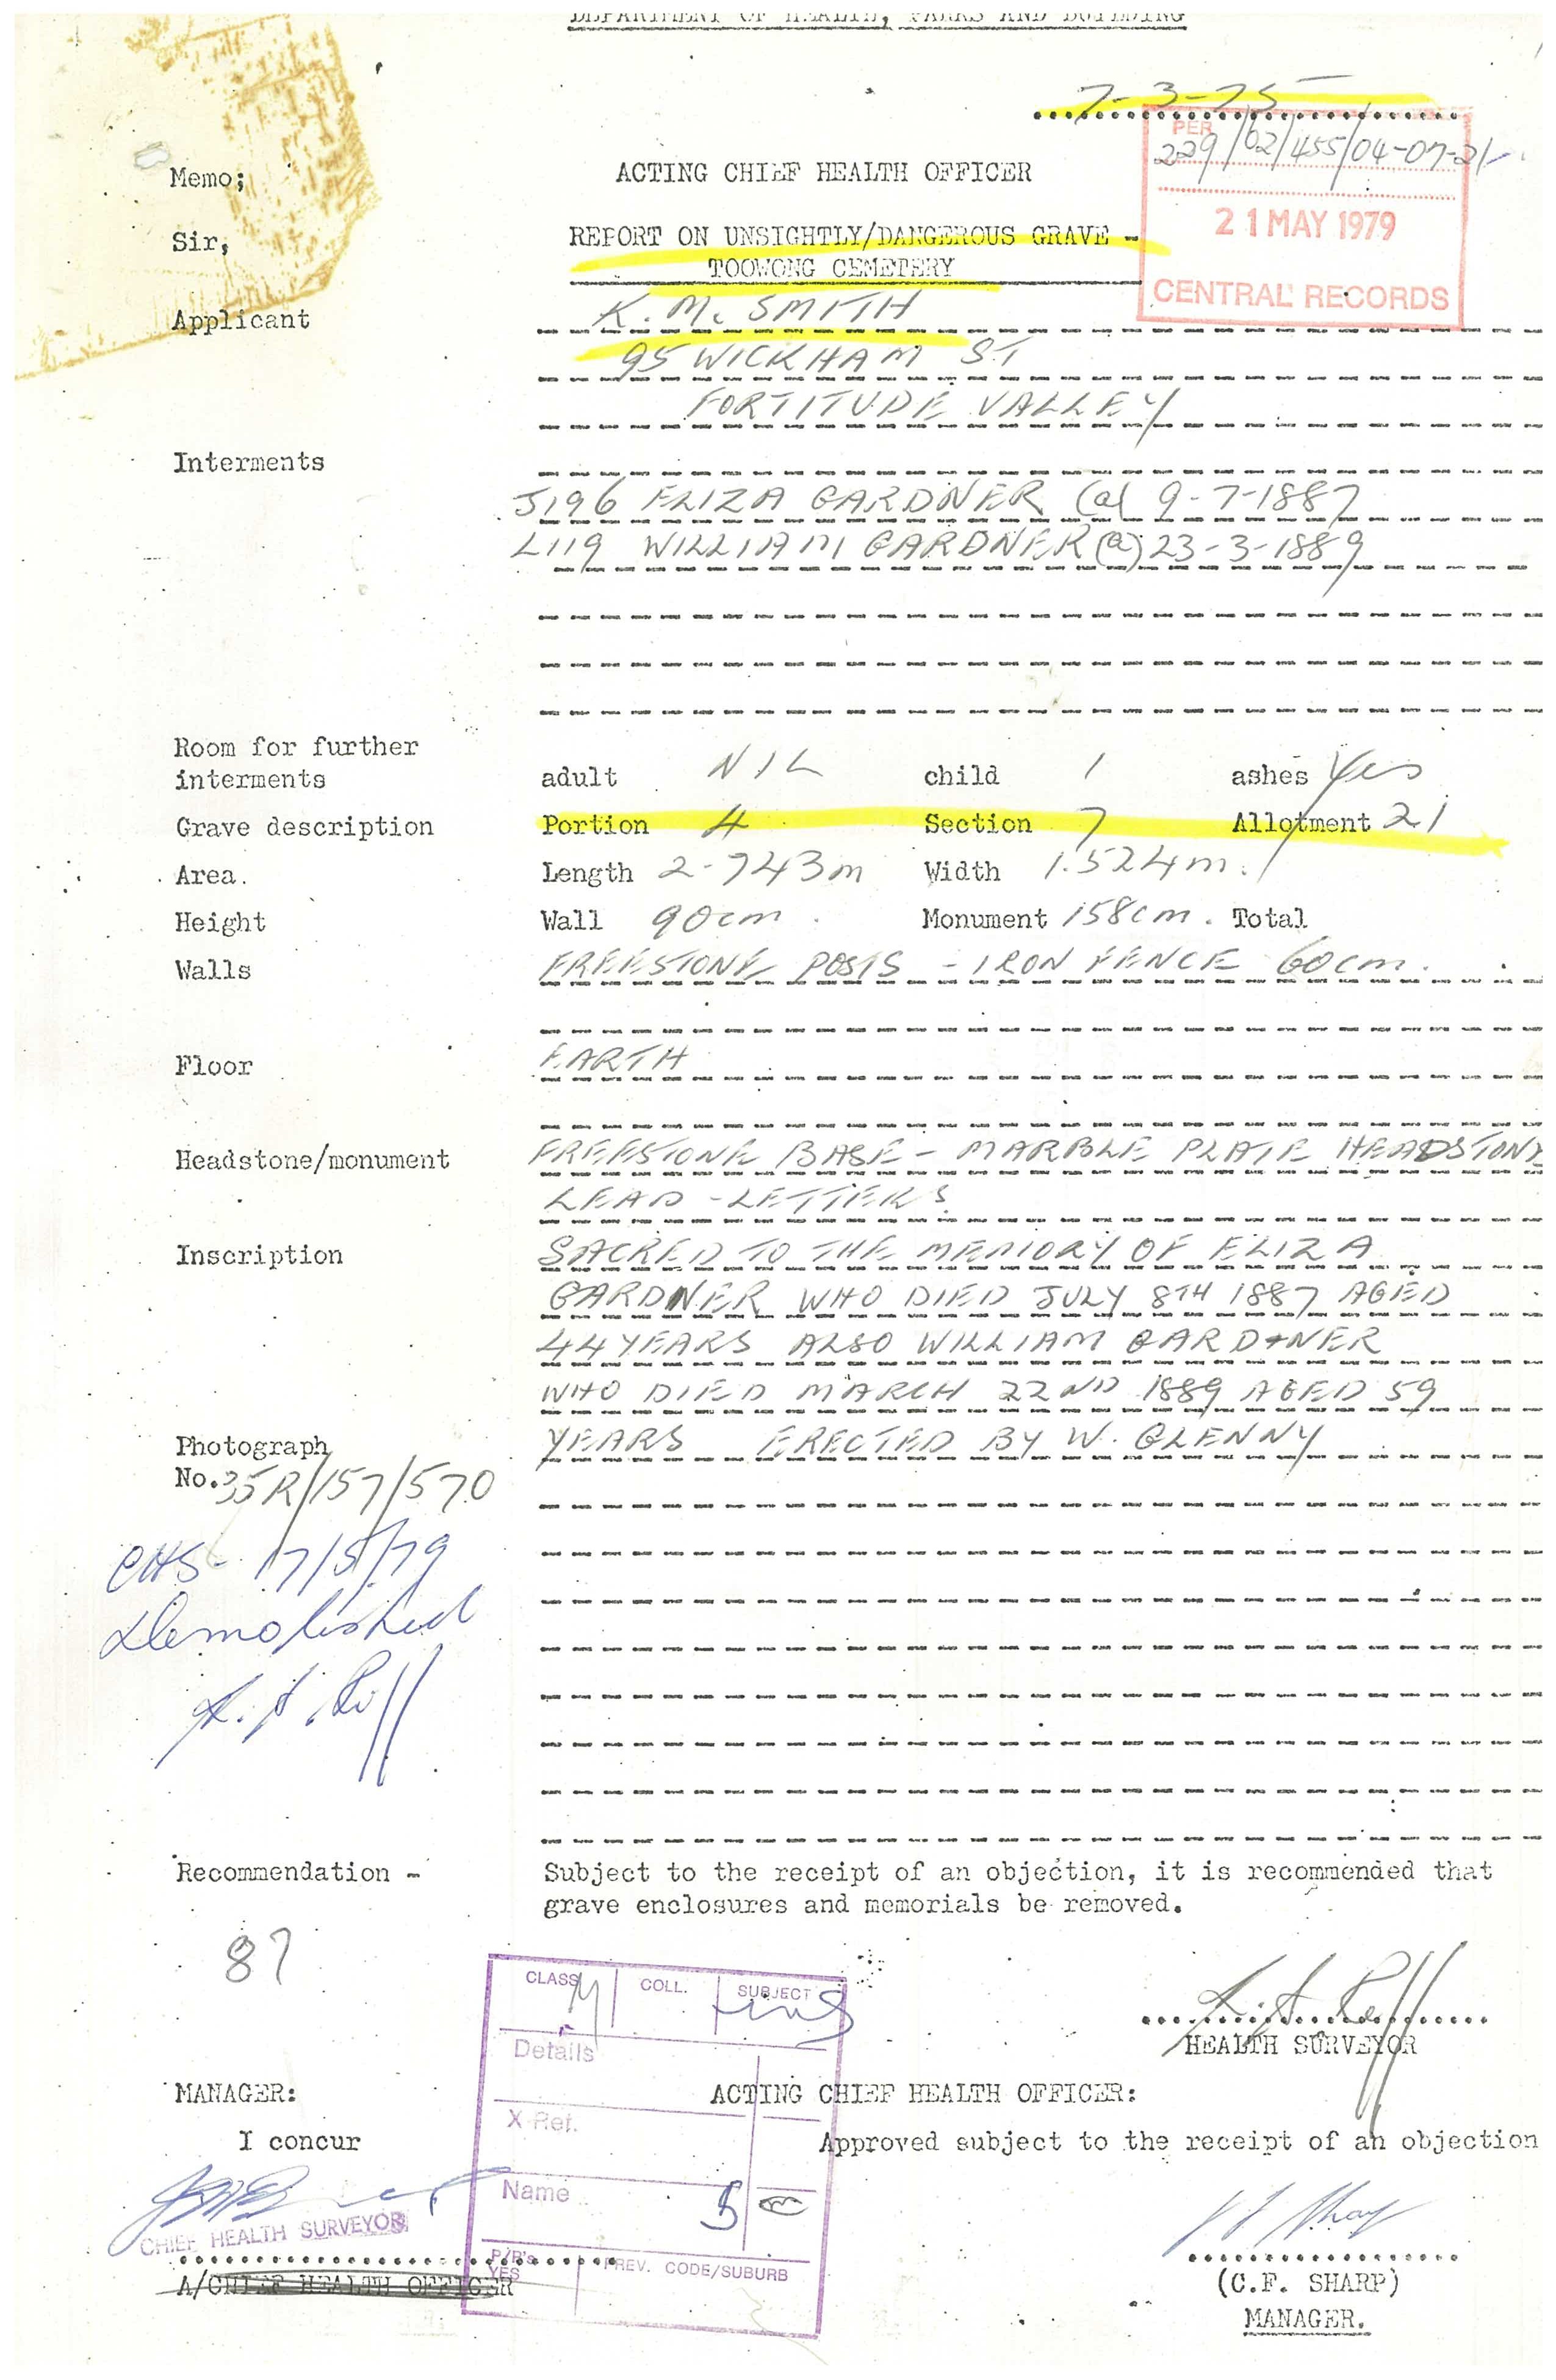 DEPARTMENT OF HEALTH, PARKS AND BUILDING
7-3-75
PER
229/02/455/04-07-21
21 MAY 1979
CENTRAL RECORDS
Memo;
ACTING CHIEF HEALTH OFFICER
Sir,
REPORT ON UNSIGHTLY/DANGEROUS GRAVE -
TOOWONG CEMETERY
Applicant
K. M. SMITH
95 WICKHAM ST
FORTITUDE VALLEY
Interments
J196 ELIZA GARDNER (a) 9-7-1887
L119 WILLIAM GARDNER (a) 23-3-1889
Room for further
interments adult NIL child 1 ashes Yes
Grave description Portion 4 Section 7 Allotment 21
Area. Length 2.743m Width 1.524m.
Height Wall 90cm. Monument 158cm. Total
Walls FREESTONE POSTS - IRON FENCE 60cm.
Floor EARTH
Headstone/monument FREESTONE BASE - MARBLE PLATE HEADSTONE
LEAD - LETTERS
Inscription SACRED TO THE MEMORY OF ELIZA
GARDNER WHO DIED JULY 8TH 1887 AGED
44 YEARS ALSO WILLIAM GARDNER
WHO DIED MARCH 22ND 1889 AGED 59
YEARS ERECTED BY W. GLENNY
Photograph
No. 35R/157/570
CHS- 17/5/79
Demolished
Recommendation - Subject to the receipt of an objection, it is recommended that
grave enclosures and memorials be removed.
87
CLASS COLL. SUBJECT
Details
X-Ref.
Name 5
P/R's YES PREV. CODE/SUBURB
HEALTH SURVEYOR
MANAGER: ACTING CHIEF HEALTH OFFICER:
I concur Approved subject to the receipt of an objection
CHIEF HEALTH SURVEYOR
A/CHIEF HEALTH OFFICER
(C.F. SHARP)
MANAGER.